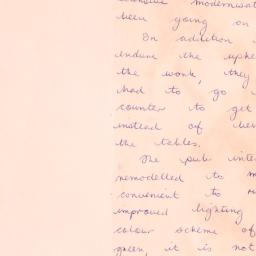 modernisat
been going on
In addition
endure the uphe
the work, they
had to go
counter to get
instead of
the tables.
The pub inte
remodelled to m
convenient to
improved lighting
colour scheme of
green, it is not